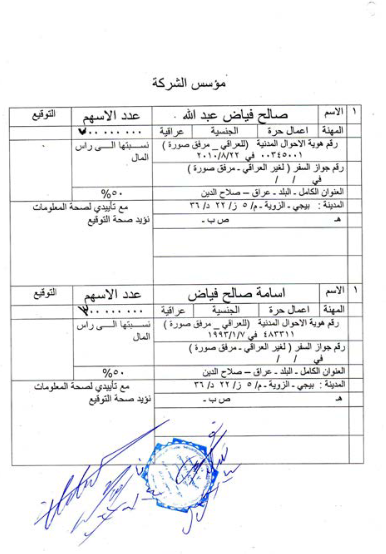 مؤسس الشركة
١ الاسم صالح فياض عبد الله عدد الاسهم التوقيع
المهنة اعمال حرة الجنسية عراقية ٠٠٠ ٠٠٠ ٠٠
رقم هوية الاحوال المدنية (للعراقي _ مرفق صورة ) نسبتها الى راس المال
٠٠٣٤٥٠٠١ في ٢٠١٠/٨/٢٢
رقم جواز السفر ( لغير العراقي - مرفق صورة )
في / /
العنوان الكامل - البلد - عراق – صلاح الدين ٥٠%
المدينة : بيجي - الزوية - م/ ٥ ز/ ٢٢ د/ ٣٦ مع تأييدي لصحة المعلومات
هـ ص ب - نؤيد صحة التوقيع
١ الاسم اسامة صالح فياض عدد الاسهم التوقيع
المهنة اعمال حرة الجنسية عراقية ٠٠٠ ٠٠٠ ٠٠
رقم هوية الاحوال المدنية (للعراقي _ مرفق صورة ) نسبتها الى راس المال
٤٨٣٣١١ في ١٩٩٣/١/٧
رقم جواز السفر ( لغير العراقي - مرفق صورة )
في / /
العنوان الكامل - البلد - عراق – صلاح الدين ٥٠%
المدينة : بيجي - الزوية - م/ ٥ ز/ ٢٢ د/ ٣٦ مع تأييدي لصحة المعلومات
هـ ص ب - نؤيد صحة التوقيع